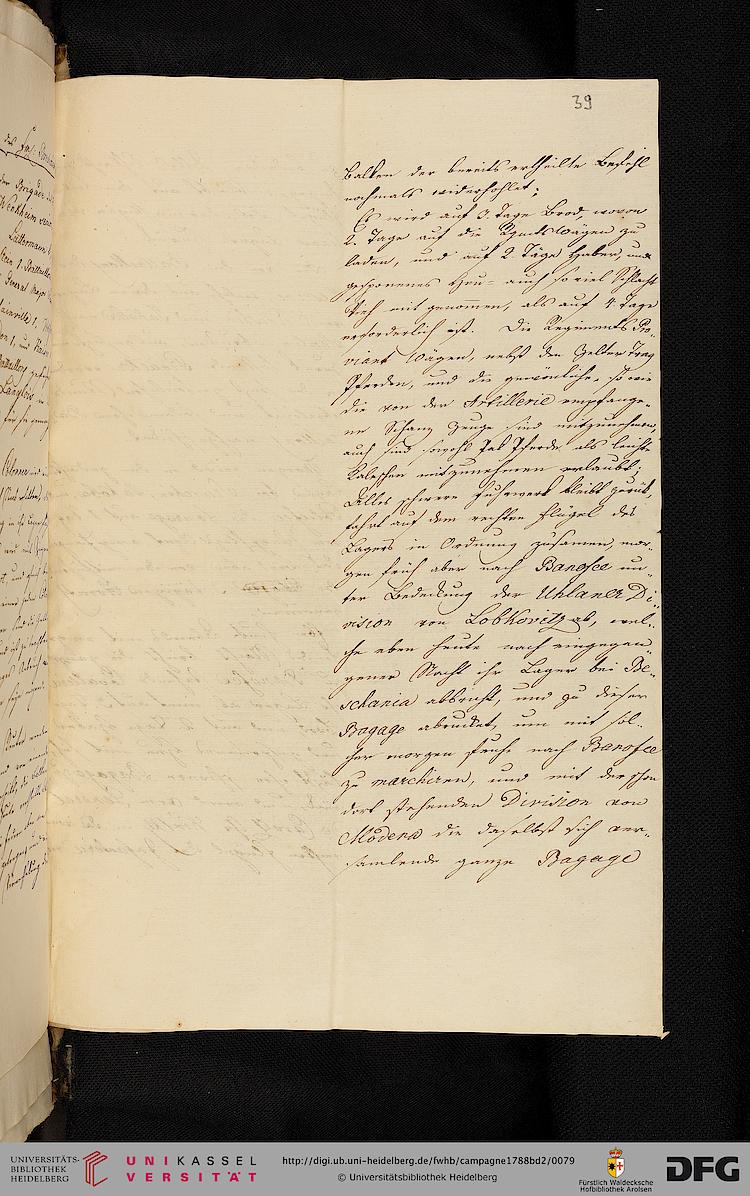 39
Balken der bereits ertheilte Befehl
nochmals widerhohlet;
Es wird auf 3. Tage Brod, wovon
2. Tage auf die Rgmts Wägen zu
laden, und auf 2. Täge Haber, und
gesponenes Heu- auch so viel Schlacht
Vieh mit genomen, als auf 4 Tage
erforderlich ist. Die Regiments Pro-
viant Wägen, nebst den Zelter Trag
Pferden, und die gewönliche, so wie
die von der Artillerie empfange-
ne Schanz Zeuge sind mitzunehmen,
auch sind sowohl Pak Pferde als leichte
Kaleschen mitzunehmen erlaubt.
Alles schwere Fuhrwerk bleibt zurük,
fahrt auf dem rechten Flügel des
Lagers in Ordnung zusamen, mor-
gen früh aber nach Banofce un-
ter Bedeckung der Uhlaner Di-
vision von Lobkovitz ab, wel-
che eben heute nach eingegan-
gener Nacht ihr Lager bei Be-
schania abbricht, und zu dieser
Bagage abrucket, um mit sol-
cher morgen fruhe nach Banofce
zu marchiren, und mit der schon
dort stehenden Division von
Modena die daselbst sich ver-
samlende ganze Bagage
UNIVERSITÄTS-
BIBLIOTHEK
HEIDELBERG
UNIKASSEL
VERSITÄT
http://digi.ub.uni-heidelberg.de/fwhb/campagne1788bd2/0079
© Universitätsbibliothek Heidelberg
Fürstlich Waldecksche
Hofbibliothek Arolsen
DFG